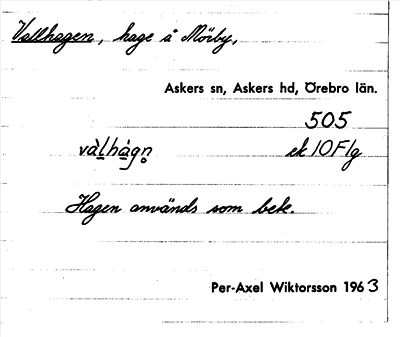 Vallhagen, hage å Mörby,
Askers sn, Askers hd, Örebro län.
505
vàlhàgn̥ ek 10F1g
Hagen används som bete.
Per-Axel Wiktorsson 1963